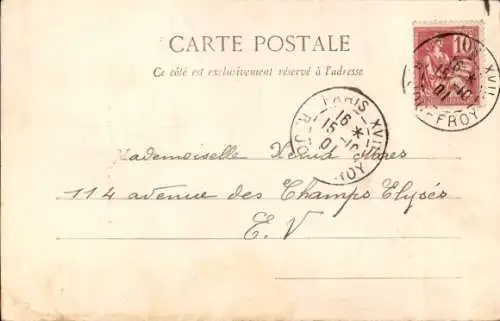 CARTE POSTALE
Ce côté est exclusivement réservé à l'adresse
10
PARIS XVII
16
15 10
01
R. JOUFFROY
Mademoiselle
114 avenue des Champs Elysés
E. V